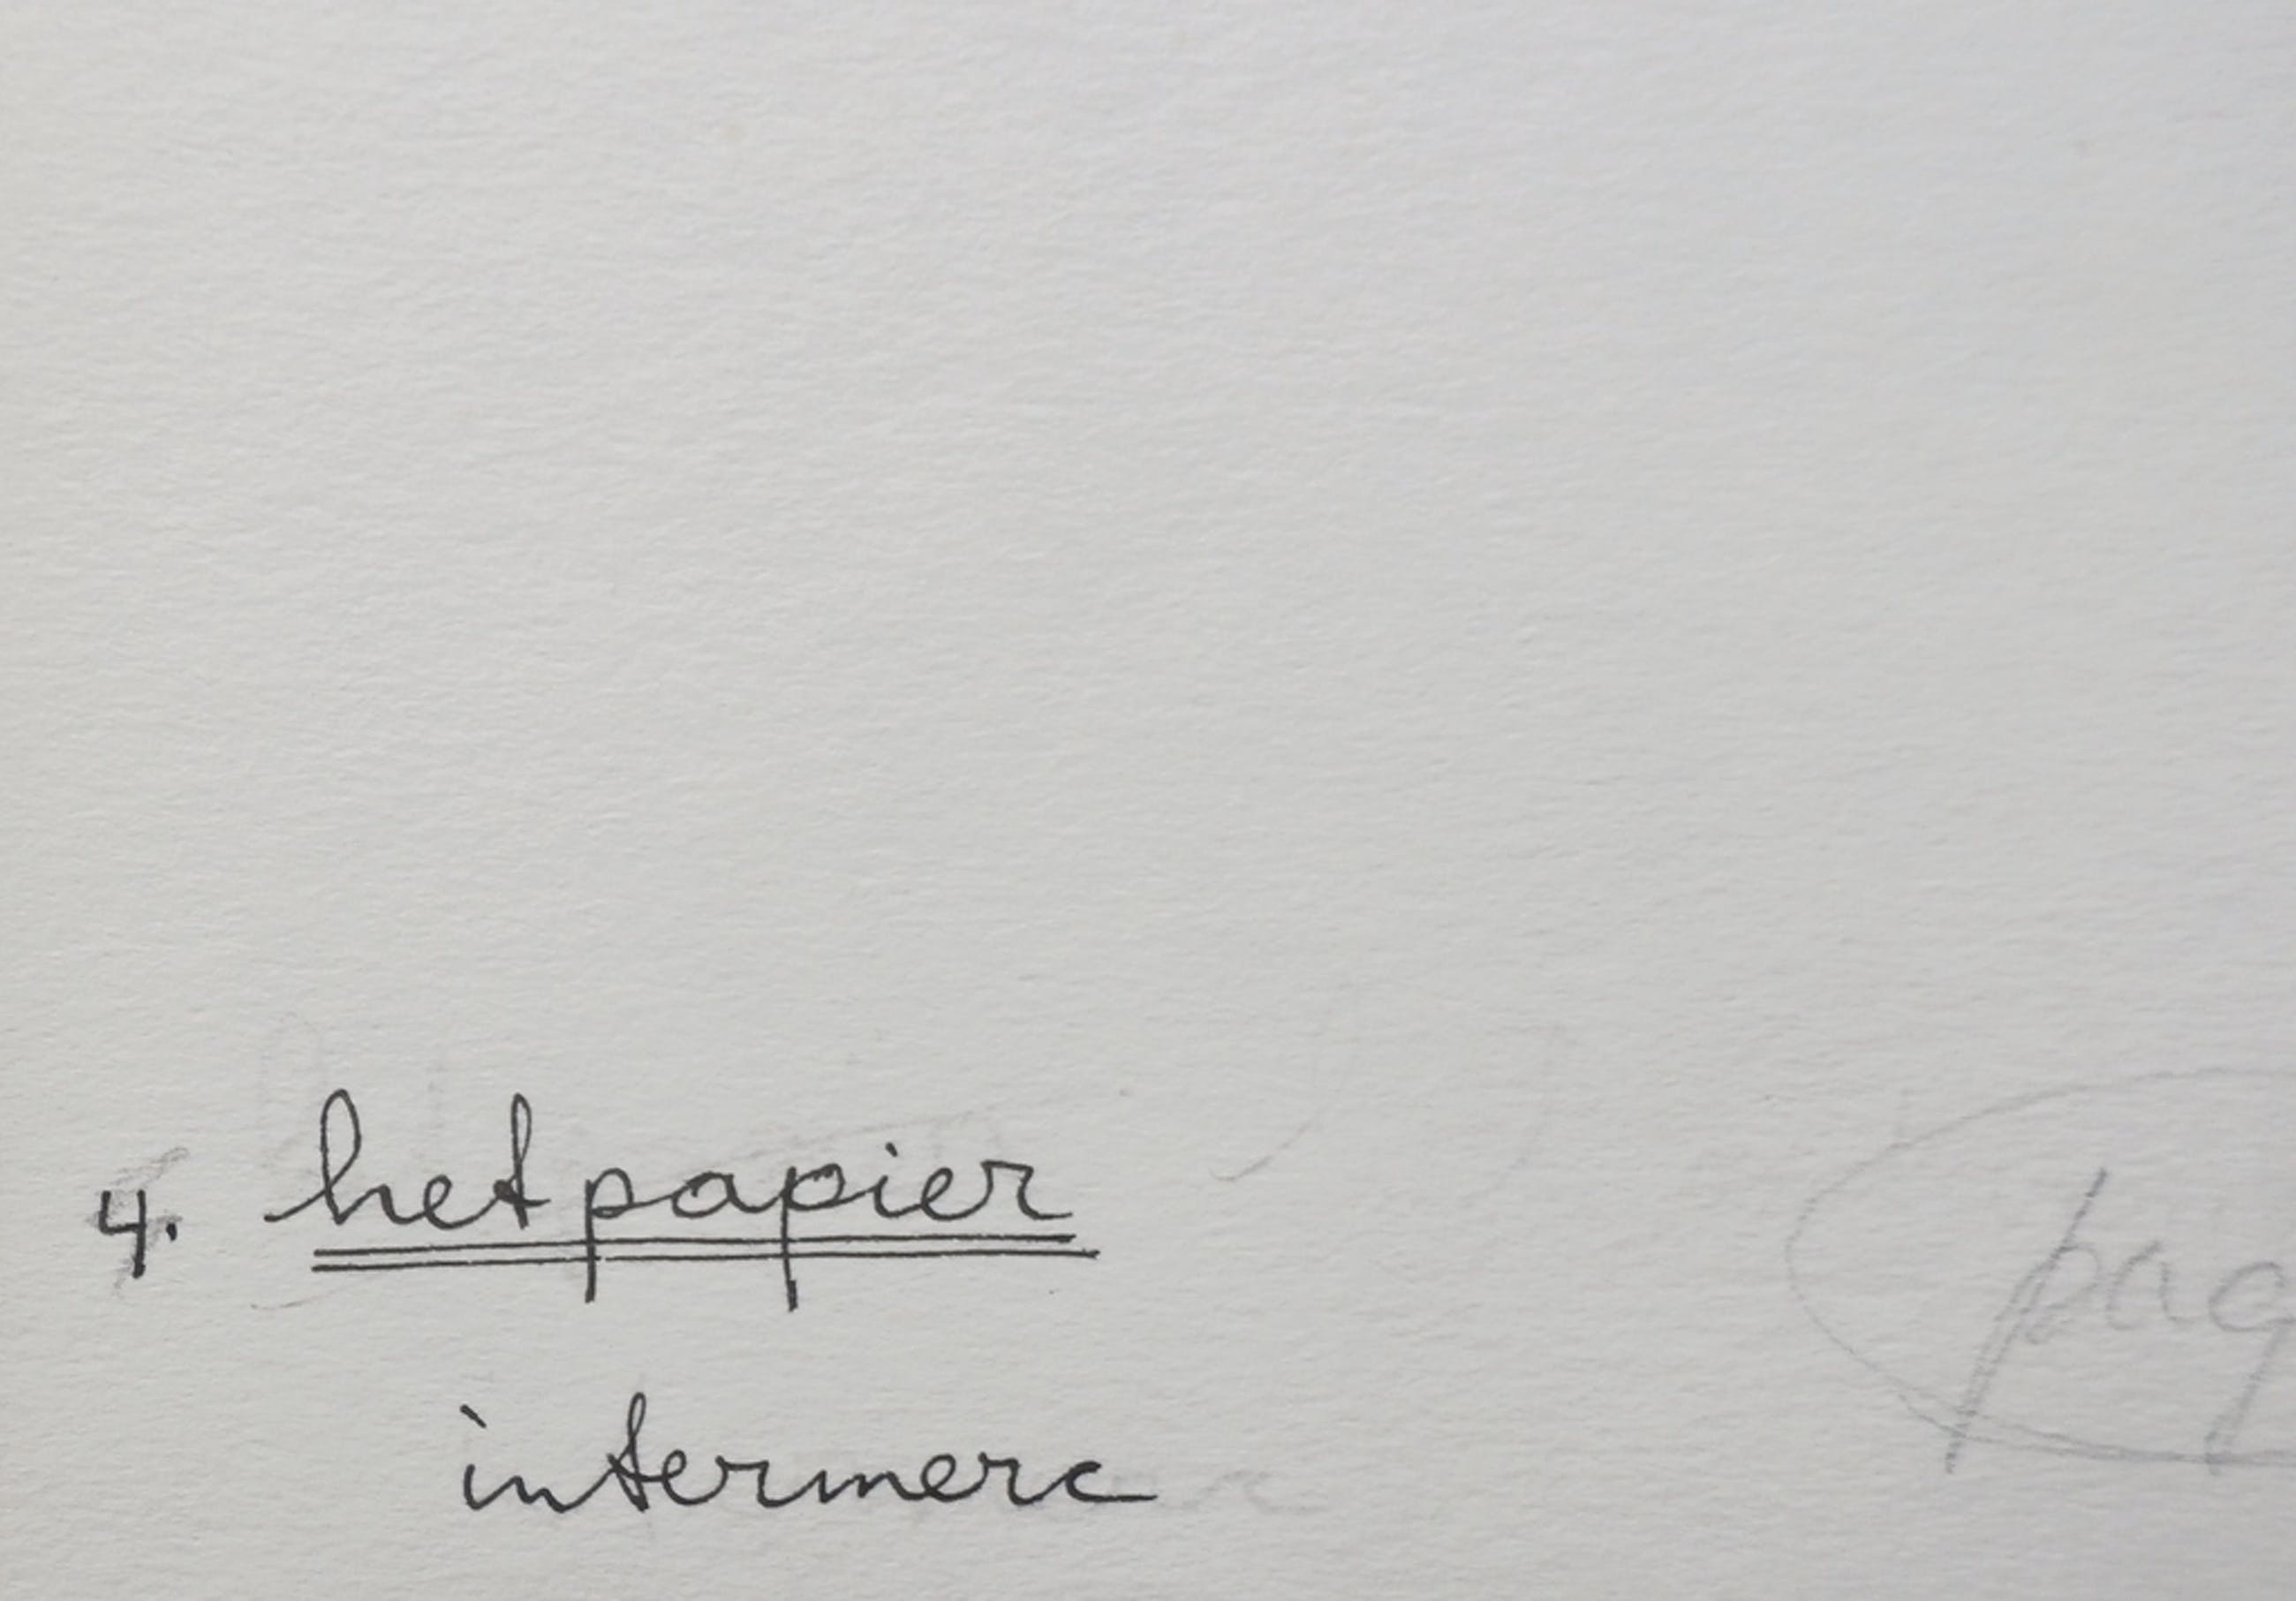 4. het papier
intermerc
pag